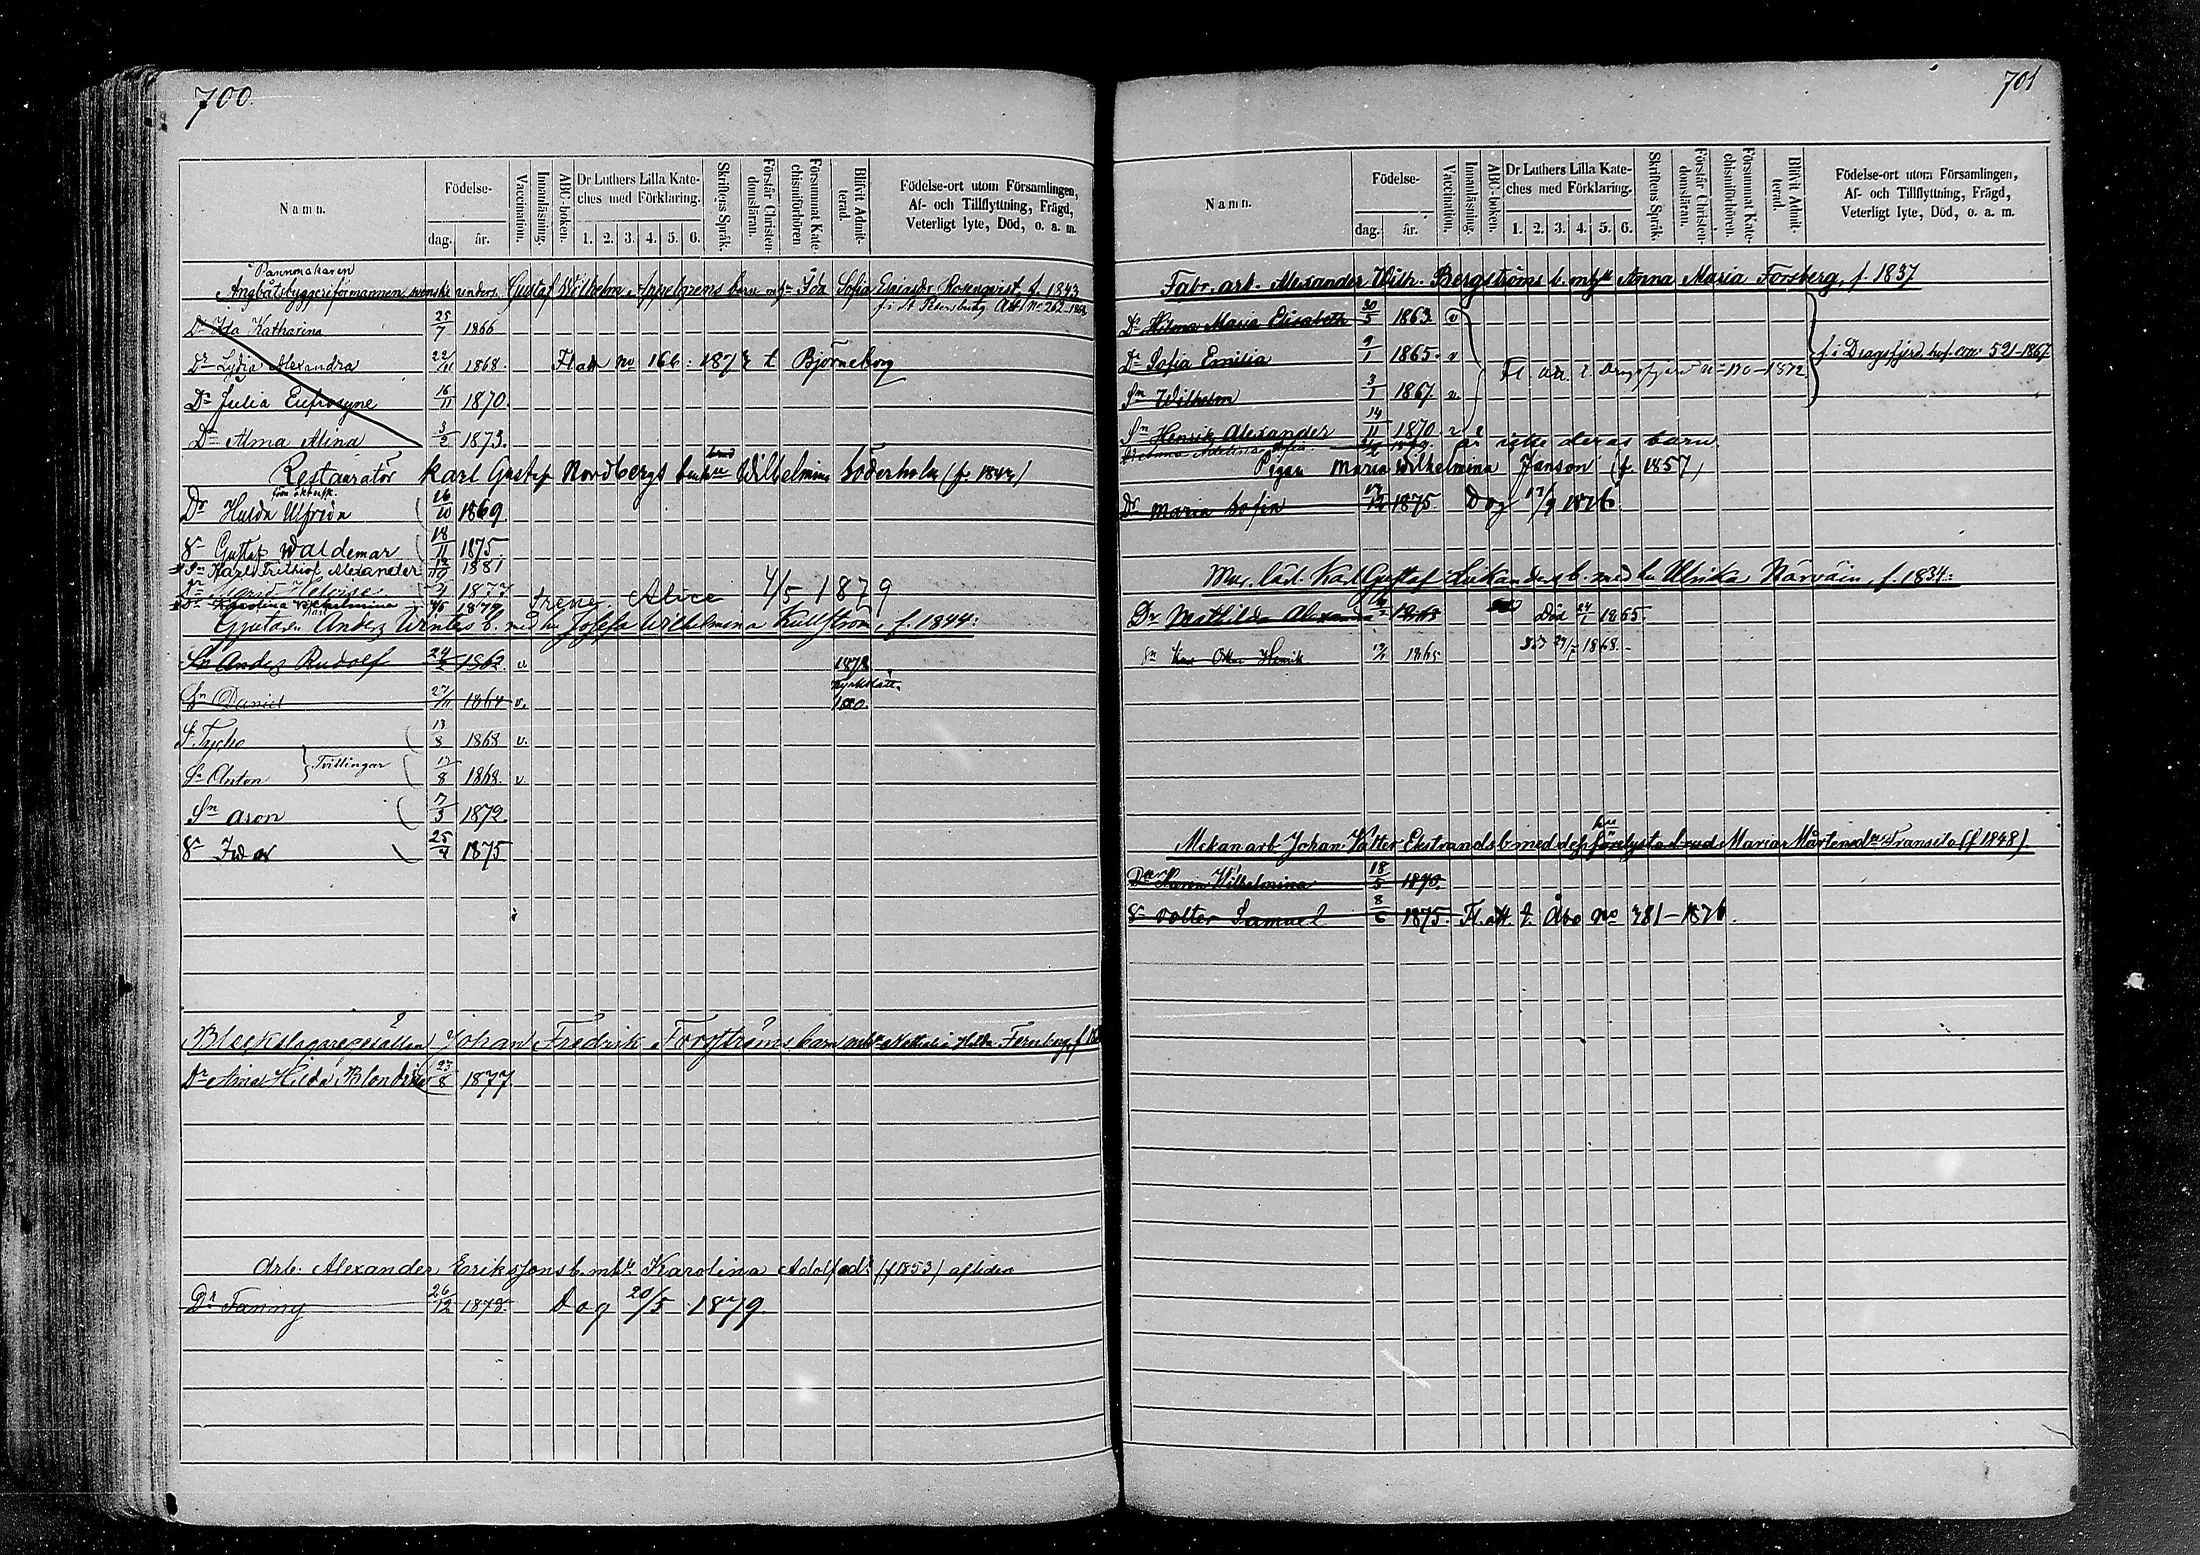 700.
Namn.
Födelse-
dag.
år.
Vaccination.
Innanläsning.
ABC-boken.
Dr Luthers Lilla Kate-
ches med Förklaring.
1. 2. 3. 4. 5. 6.
Skriftens Språk.
Förstår Christen-
domsläran.
Försummat Kate-
chismiförhören
Blifvit Admit-
terad.
Födelse-ort utom Församlingen,
Af- och Tillflyttning, Frägd,
Veterligt lyte, Död, o. a. m.
Pannmakaren
Ångbåtsbyggeriförmannen, svenske unders. Gustaf Wilhelm Appelgrens barn m h:n Ida Sofia Rosenqvist f. 1843
f. i St Petersburg. Att. No 262-1868
Dr Ida Katharina 25/7 1866
Dr Lydia Alexandra 22/11 1868. Fl att No 166: 1873 t Björneborg
Dr Julia Eufrosyne 16/11 1870.
Dr Alma Alina 3/2 1873.
Restauratör Karl Gustaf Nordbergs Wilhelmina Söderholm (f. 1844)
Dr Hulda Alfrida 16/10 1869
Sn Gustaf Waldemar 18/11 1875.
Sn Karl Frithiof Alexander 1881
1877 Irene Alice 4/5 1879
Karolina Wilhelmina 1879
Gjutaren Anders Wintas b. med hu Josefa Wilhelmina Kullström, f. 1844:
Sn Anders Rudolf 24/2 1862. v. 1878
Kyrkslätt.
Sn Daniel 27/11 1864 v. 1880.
Sn Tycho 13/8 1868 v.
Tvillingar
Sn Anton 13/8 1868. v
Sn Aron 7/3 1872.
Sn Ivar 25/4 1875
Bleckslagaregesällen Johan Fredrik Forsströms barn Nathalia Hilda Fernberg, f
Dr Aina Hilda Blondina 23/8 1877
Arb. Alexander Erikssons b. mhu Karolina Adolfsdr (f 1853) afliden
Dr Fanny 26/12 1878. Dog 20/5 1879
701
Namn.
Födelse-
dag.
år.
Vaccination.
Innanläsning.
ABC-boken.
Dr Luthers Lilla Kate-
ches med Förklaring.
1. 2. 3. 4. 5. 6.
Skriftens Språk.
Förstår Christen-
domsläran.
Försummat Kate-
chismiförhören.
Blifvit Admit-
terad.
Födelse-ort utom Församlingen,
Af- och Tillflyttning, Frägd,
Veterligt lyte, Död, o. a. m.
Fabr. arb. Alexander Wilh. Bergströms b. mhu Anna Maria Forsberg, f. 1837
Dr Hilma Maria Elisabeth 30/5 1863 v
Dr Sofia Emilia 9/1 1865. v f. i Dragsfjerd, 521-1867
Fl. att. t. Dragsfjerd No 170-1872
Sn Wilhelm 3/1 1867. v
Sn Henrik Alexander 14/11 1870. v
är icke deras barn
Pigan Maria Wilhelmina Janson (f. 1857)
Dr Maria Sofia 1875 Dog 17/9 1876
Mur. lärl. Karl Gustaf Lukanders b. med hu Ulrika Närväin, f. 1834:
Dr Mathilda Alexandra 1863 Död 24/1 1865.
Sn Karl Oskar Henrik 1865 1868.
Mekan arb Johan Valter Ekstrands b med Maria Mårtensdr Fransila (f 1848)
Dr Karin Wilhelmina 18/5 1870.
Sn Volter Samuel 8/6 1875. Fl. att. t. Åbo No 781-1876.